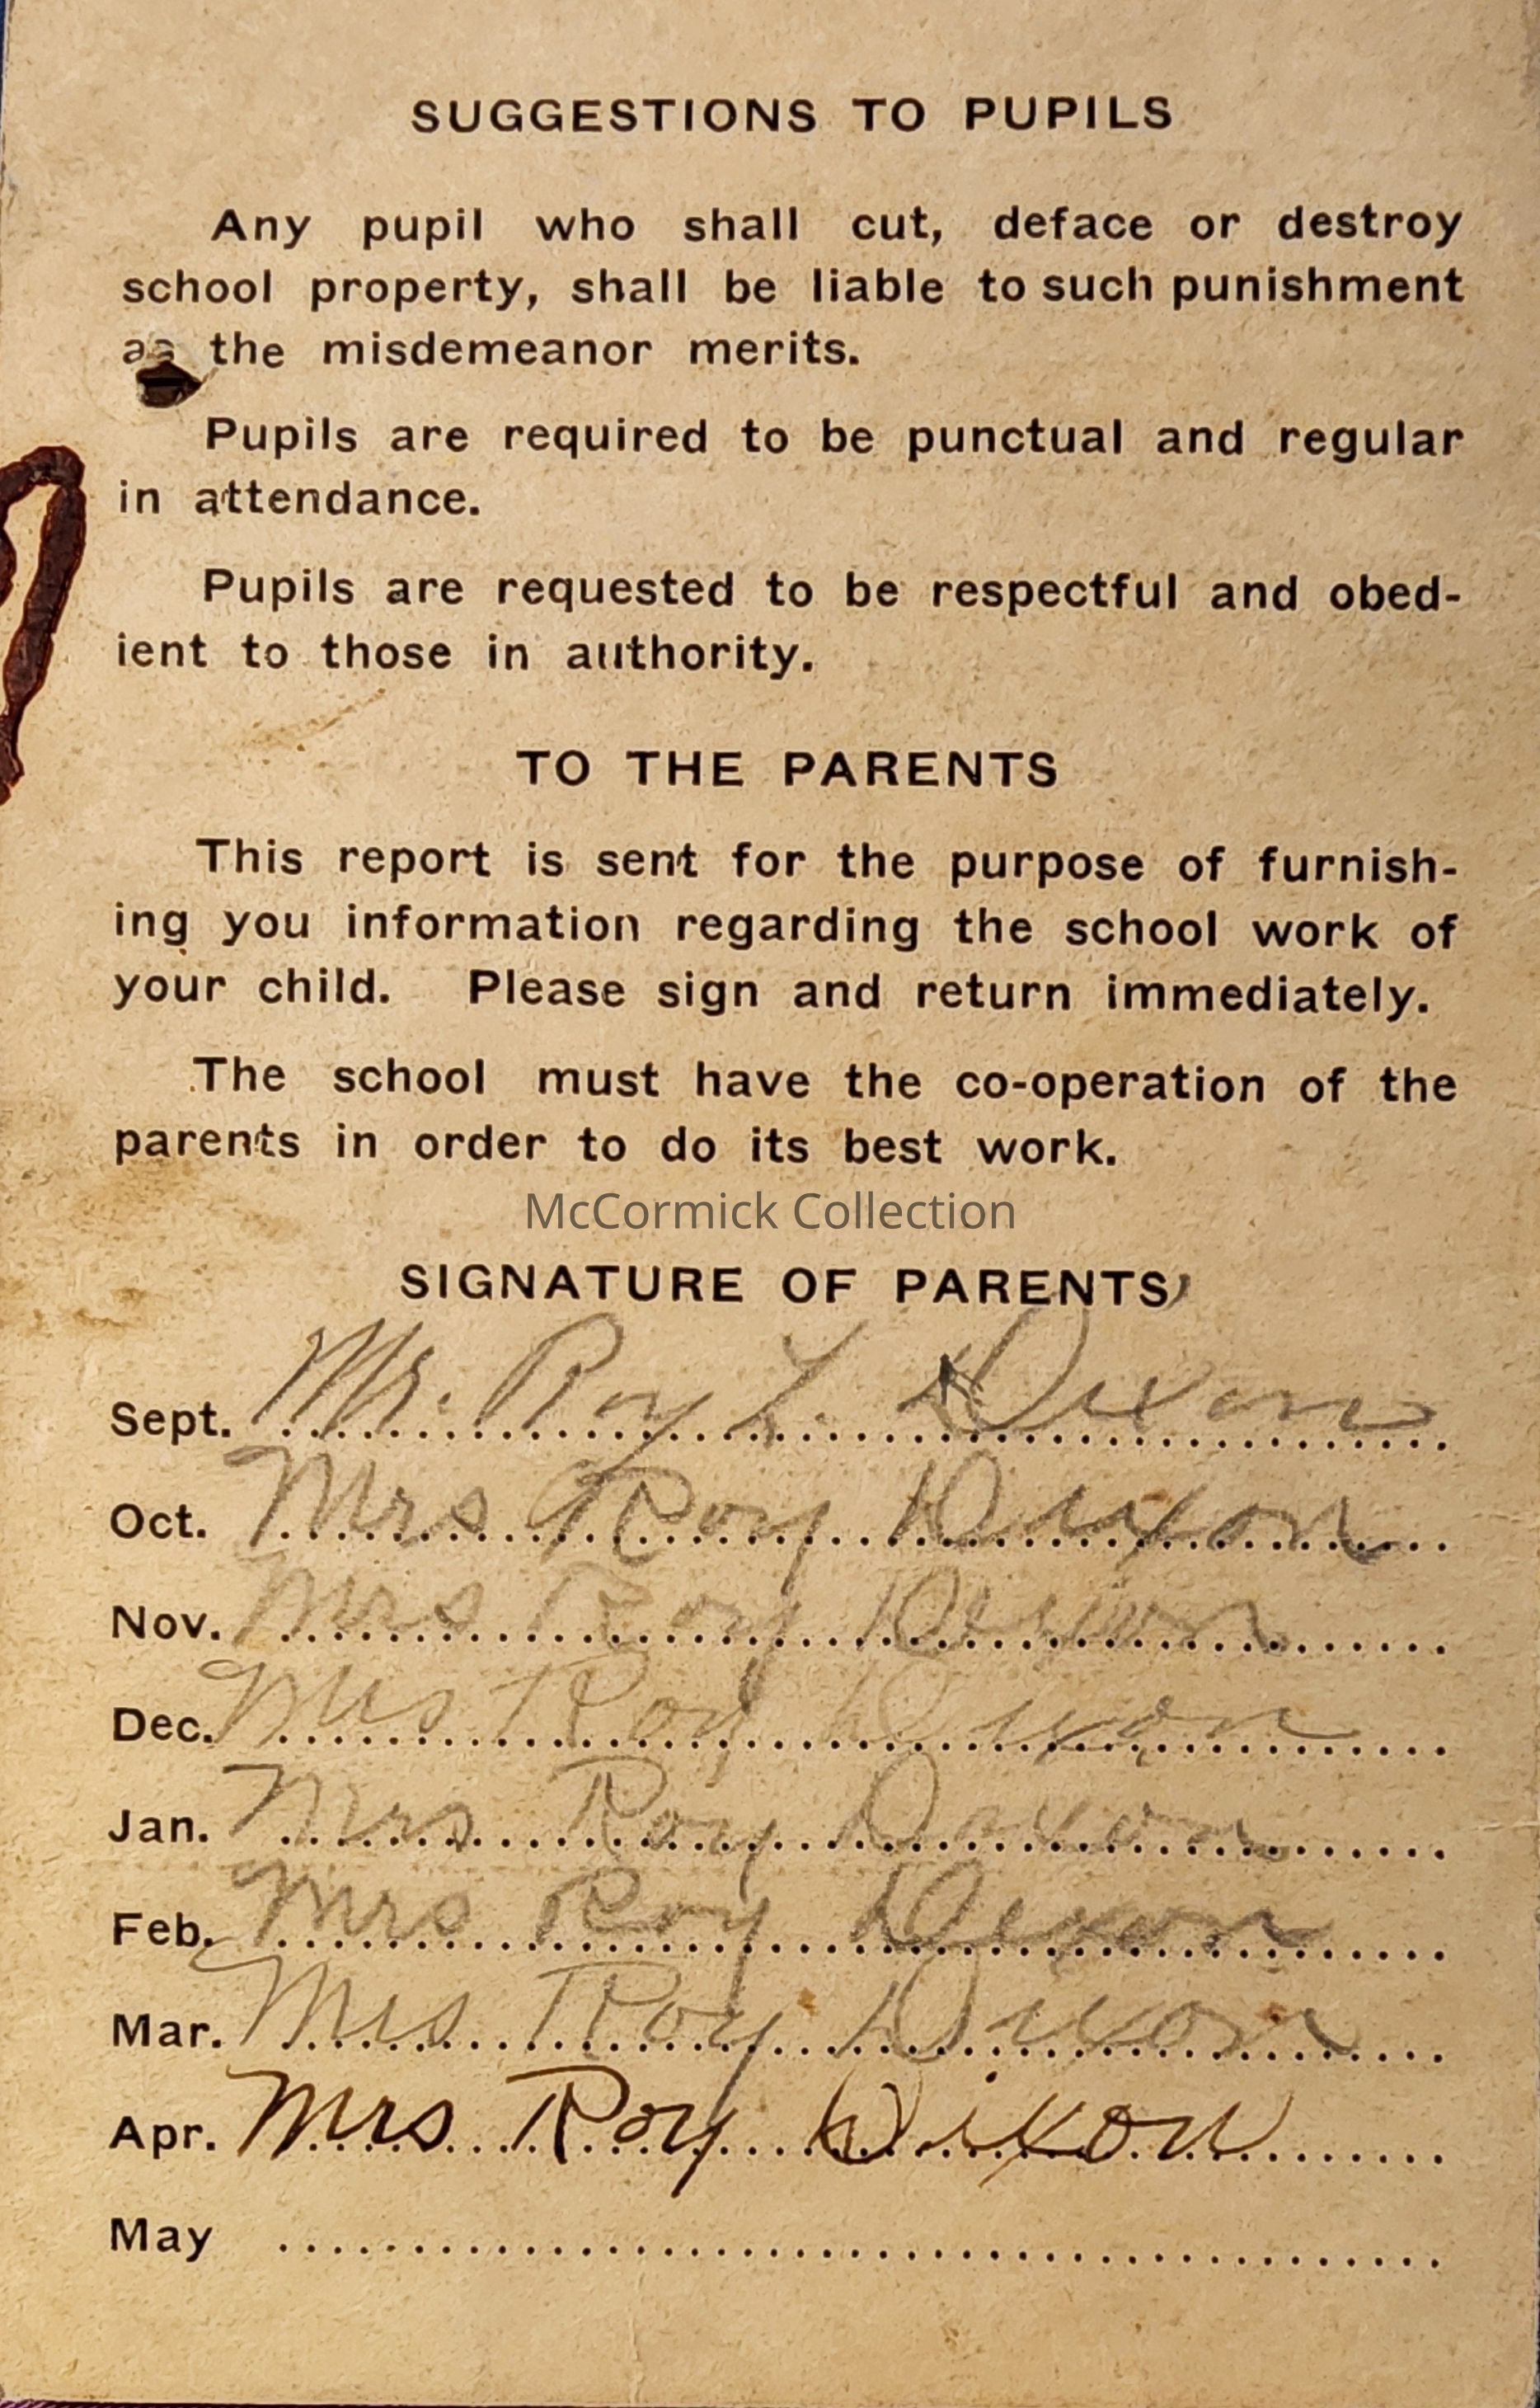 SUGGESTIONS TO PUPILS
Any pupil who shall cut, deface or destroy
school property, shall be liable to such punishment
as the misdemeanor merits.
Pupils are required to be punctual and regular
in attendance.
Pupils are requested to be respectful and obed-
ient to those in authority.
TO THE PARENTS
This report is sent for the purpose of furnish-
ing you information regarding the school work of
your child. Please sign and return immediately.
The school must have the co-operation of the
parents in order to do its best work.
McCormick Collection
SIGNATURE OF PARENTS
Sept. Mr. Roy L. Dixon
Oct. Mrs Roy Dixon
Nov. Mrs Roy Dixon
Dec. Mrs Roy Dixon
Jan. Mrs Roy Dixon
Feb. Mrs Roy Dixon
Mar. Mrs Roy Dixon
Apr. Mrs Roy Dixon
May